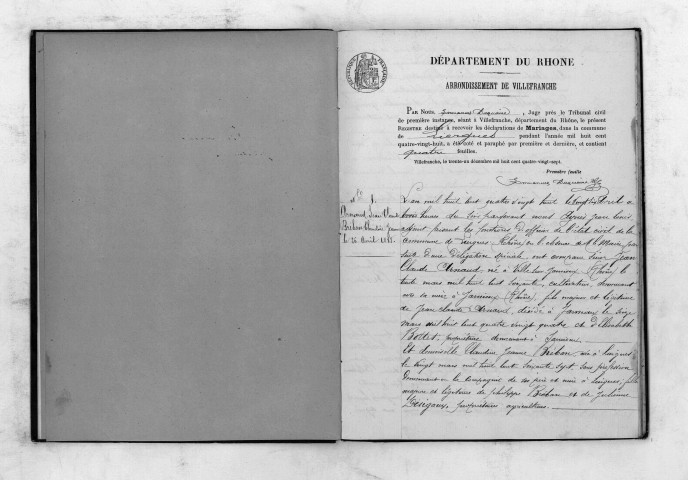 DÉPARTEMENT DU RHONE
ARRONDISSEMENT DE VILLEFRANCHE
PAR NOUS, Juge près le Tribunal civil
de première instance, séant à Villefranche, département du Rhône, le présent
REGISTRE destiné à recevoir les déclarations de Mariages, dans la commune
de pendant l'année mil huit cent
quatre-vingt-huit, a été coté et paraphé par première et dernière, et contient
quatre feuilles.
Villefranche, le trente-un décembre mil huit cent quatre-vingt-sept.
Première feuille
N° 1.
Jean Claude
Bréban Claudine Jeanne
le 26 Avril 1888.
L'an mil huit cent quatre vingt huit le vingt six Avril à
trois heures du soir pardevant nous Jean Louis
adjoint faisant les fonctions d'officier de l'état civil de la
commune de (Rhône) en l'absence de M. le Maire, par
suite d'une délégation spéciale, ont comparu Sieur Jean
Claude Arnaud, né à Ville sur Jarnioux (Rhône) le
trente mars mil huit cent soixante, cultivateur, demeurant
avec sa mère à Jarnioux (Rhône), fils majeur et légitime
de Jean Claude Arnaud, décédé à Jarnioux le
mars mil huit cent quatre vingt quatre et d'Elisabeth
propriétaire demeurant à Jarnioux.
Et demoiselle Claudine Jeanne Bréban, née à Liergues
le vingt mars mil huit cent soixante sept, sans profession
demeurant en la compagnie de ses père et mère à Liergues, fille
majeure et légitime de philippe Bréban et de Julienne
propriétaires agriculteurs.